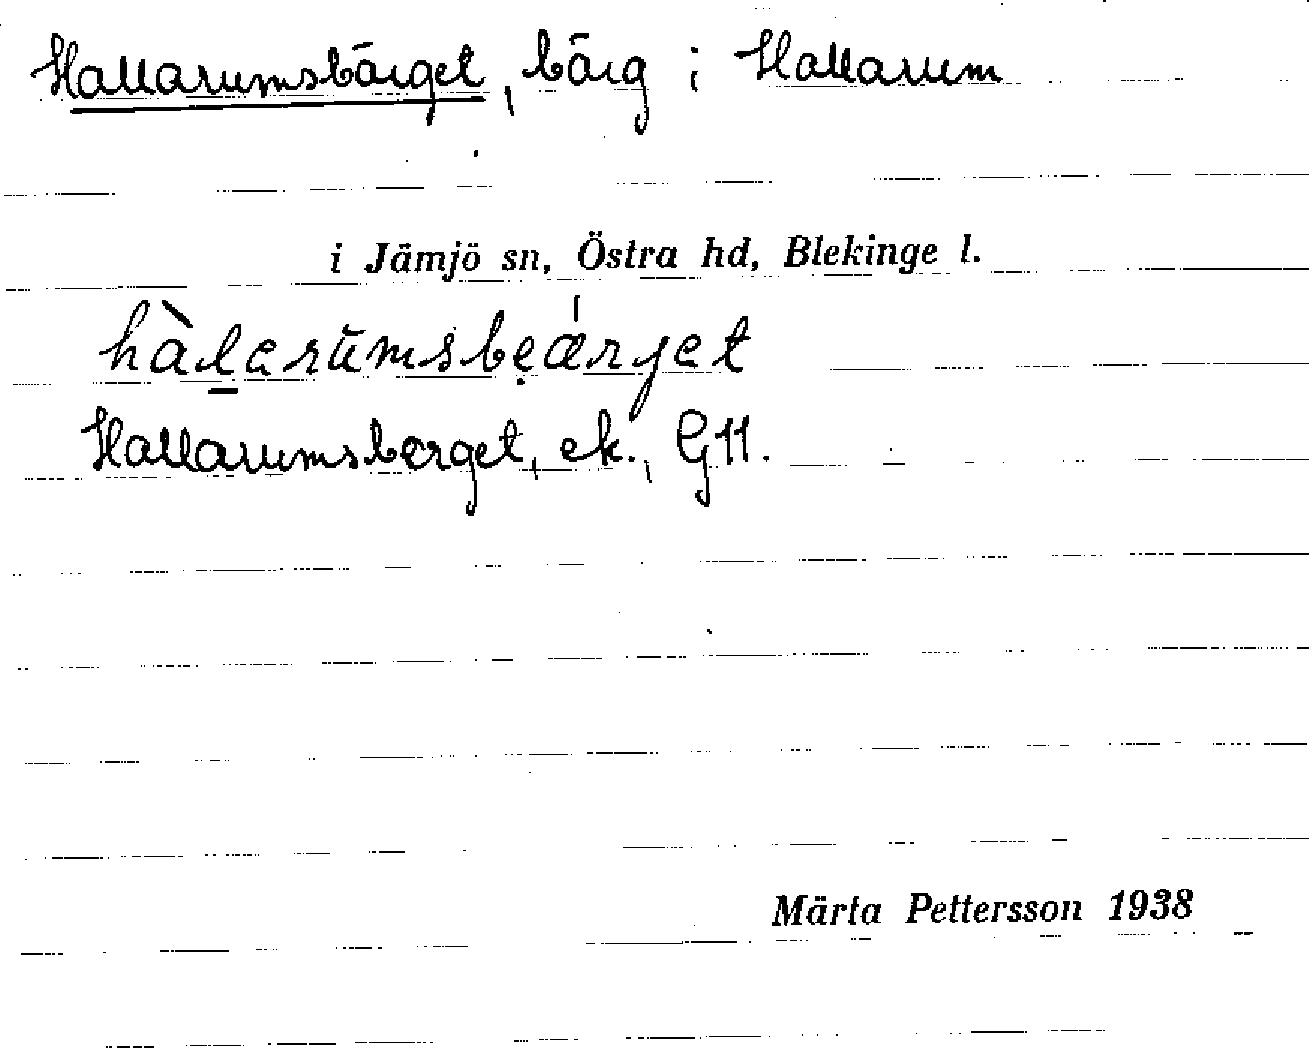 Hallarumsbärget, bärg i Hallarum
i Jämjö sn, Östra hd, Blekinge l.
hàlarūmsbeǽrget
Hallarumsberget, ek., G11.
Märta Pettersson 1938